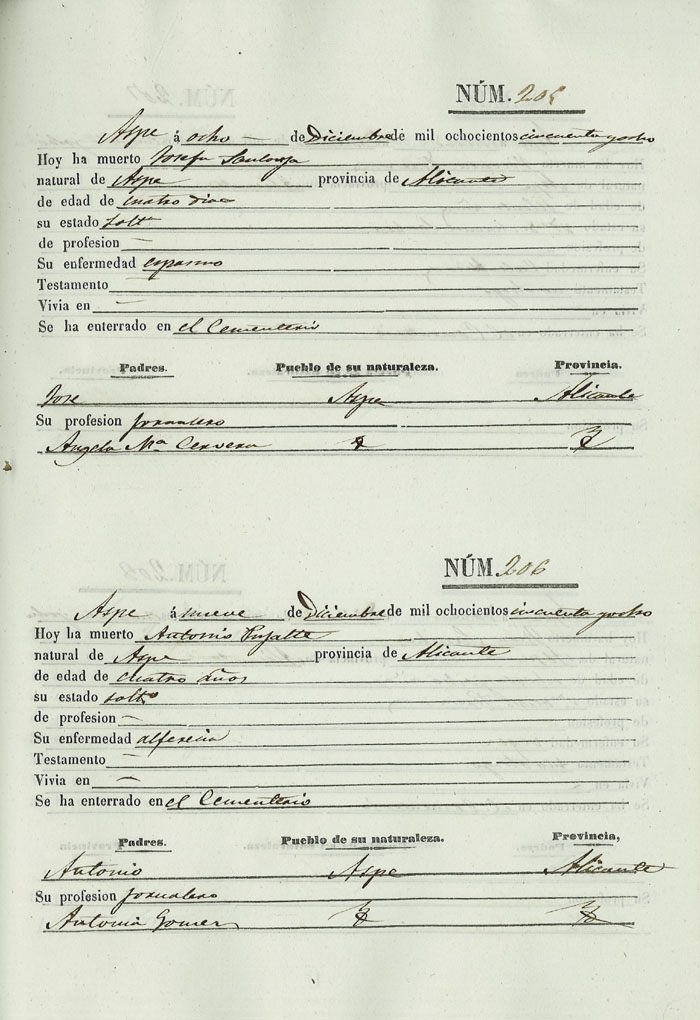 NÚM. 205
Aspe á ocho de Diciembre de mil ochocientos cincuenta y ocho
Hoy ha muerto Josefa
natural de Aspe provincia de Alicante
de edad de cuatro dias
su estado solta
de profesion —
Su enfermedad espasmo
Testamento —
Vivia en —
Se ha enterrado en el Cementerio
Padres. Pueblo de su naturaleza. Provincia.
Jose Aspe Alicante
Su profesion jornalero
Angela Ma Cervera
NÚM. 206
Aspe á nueve de Diciembre de mil ochocientos cincuenta y ocho
Hoy ha muerto Antonio Pujalte
natural de Aspe provincia de Alicante
de edad de cuatro años
su estado solto
de profesion —
Su enfermedad alferecia
Testamento —
Vivia en —
Se ha enterrado en el Cementerio
Padres. Pueblo de su naturaleza. Provincia,
Antonio Aspe Alicante
Su profesion jornalero
Antonia Gomez